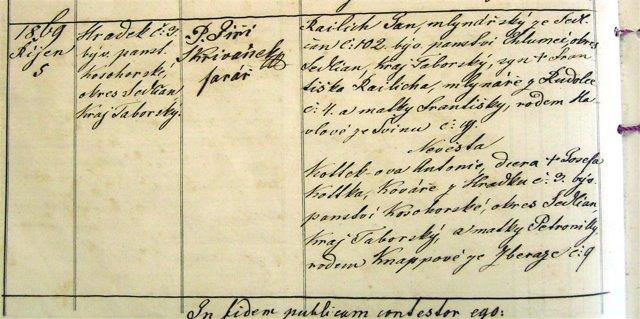 1869
Říjen
5
Hradek č. 3.
býv. panst.
kosohorské,
okres Sedlčan
Kraj Taborský.
P. Jiří
Skřivánek
farář
Railich Jan, mlynářský ze Sedl-
čan č. 102. býv. panství Chlumec, okres
Sedlčan, Kraj Taborský, syn + Fran-
tiška Railicha, mlynáře z Rudolec
č. 4. a matky Františky, rodem Ha-
vlové ze Svinu č. 19.
Nevěsta
Kottek-ova Antonie, dcera + Josefa
Kottka, Kováře z Hradku č. 3. býv.
panství Kosohorské, okres Sedlčan,
Kraj Taborský, a matky Petronily
rodem Knappové ze Zberaze č. 9
In fidem publicam contestor ego: